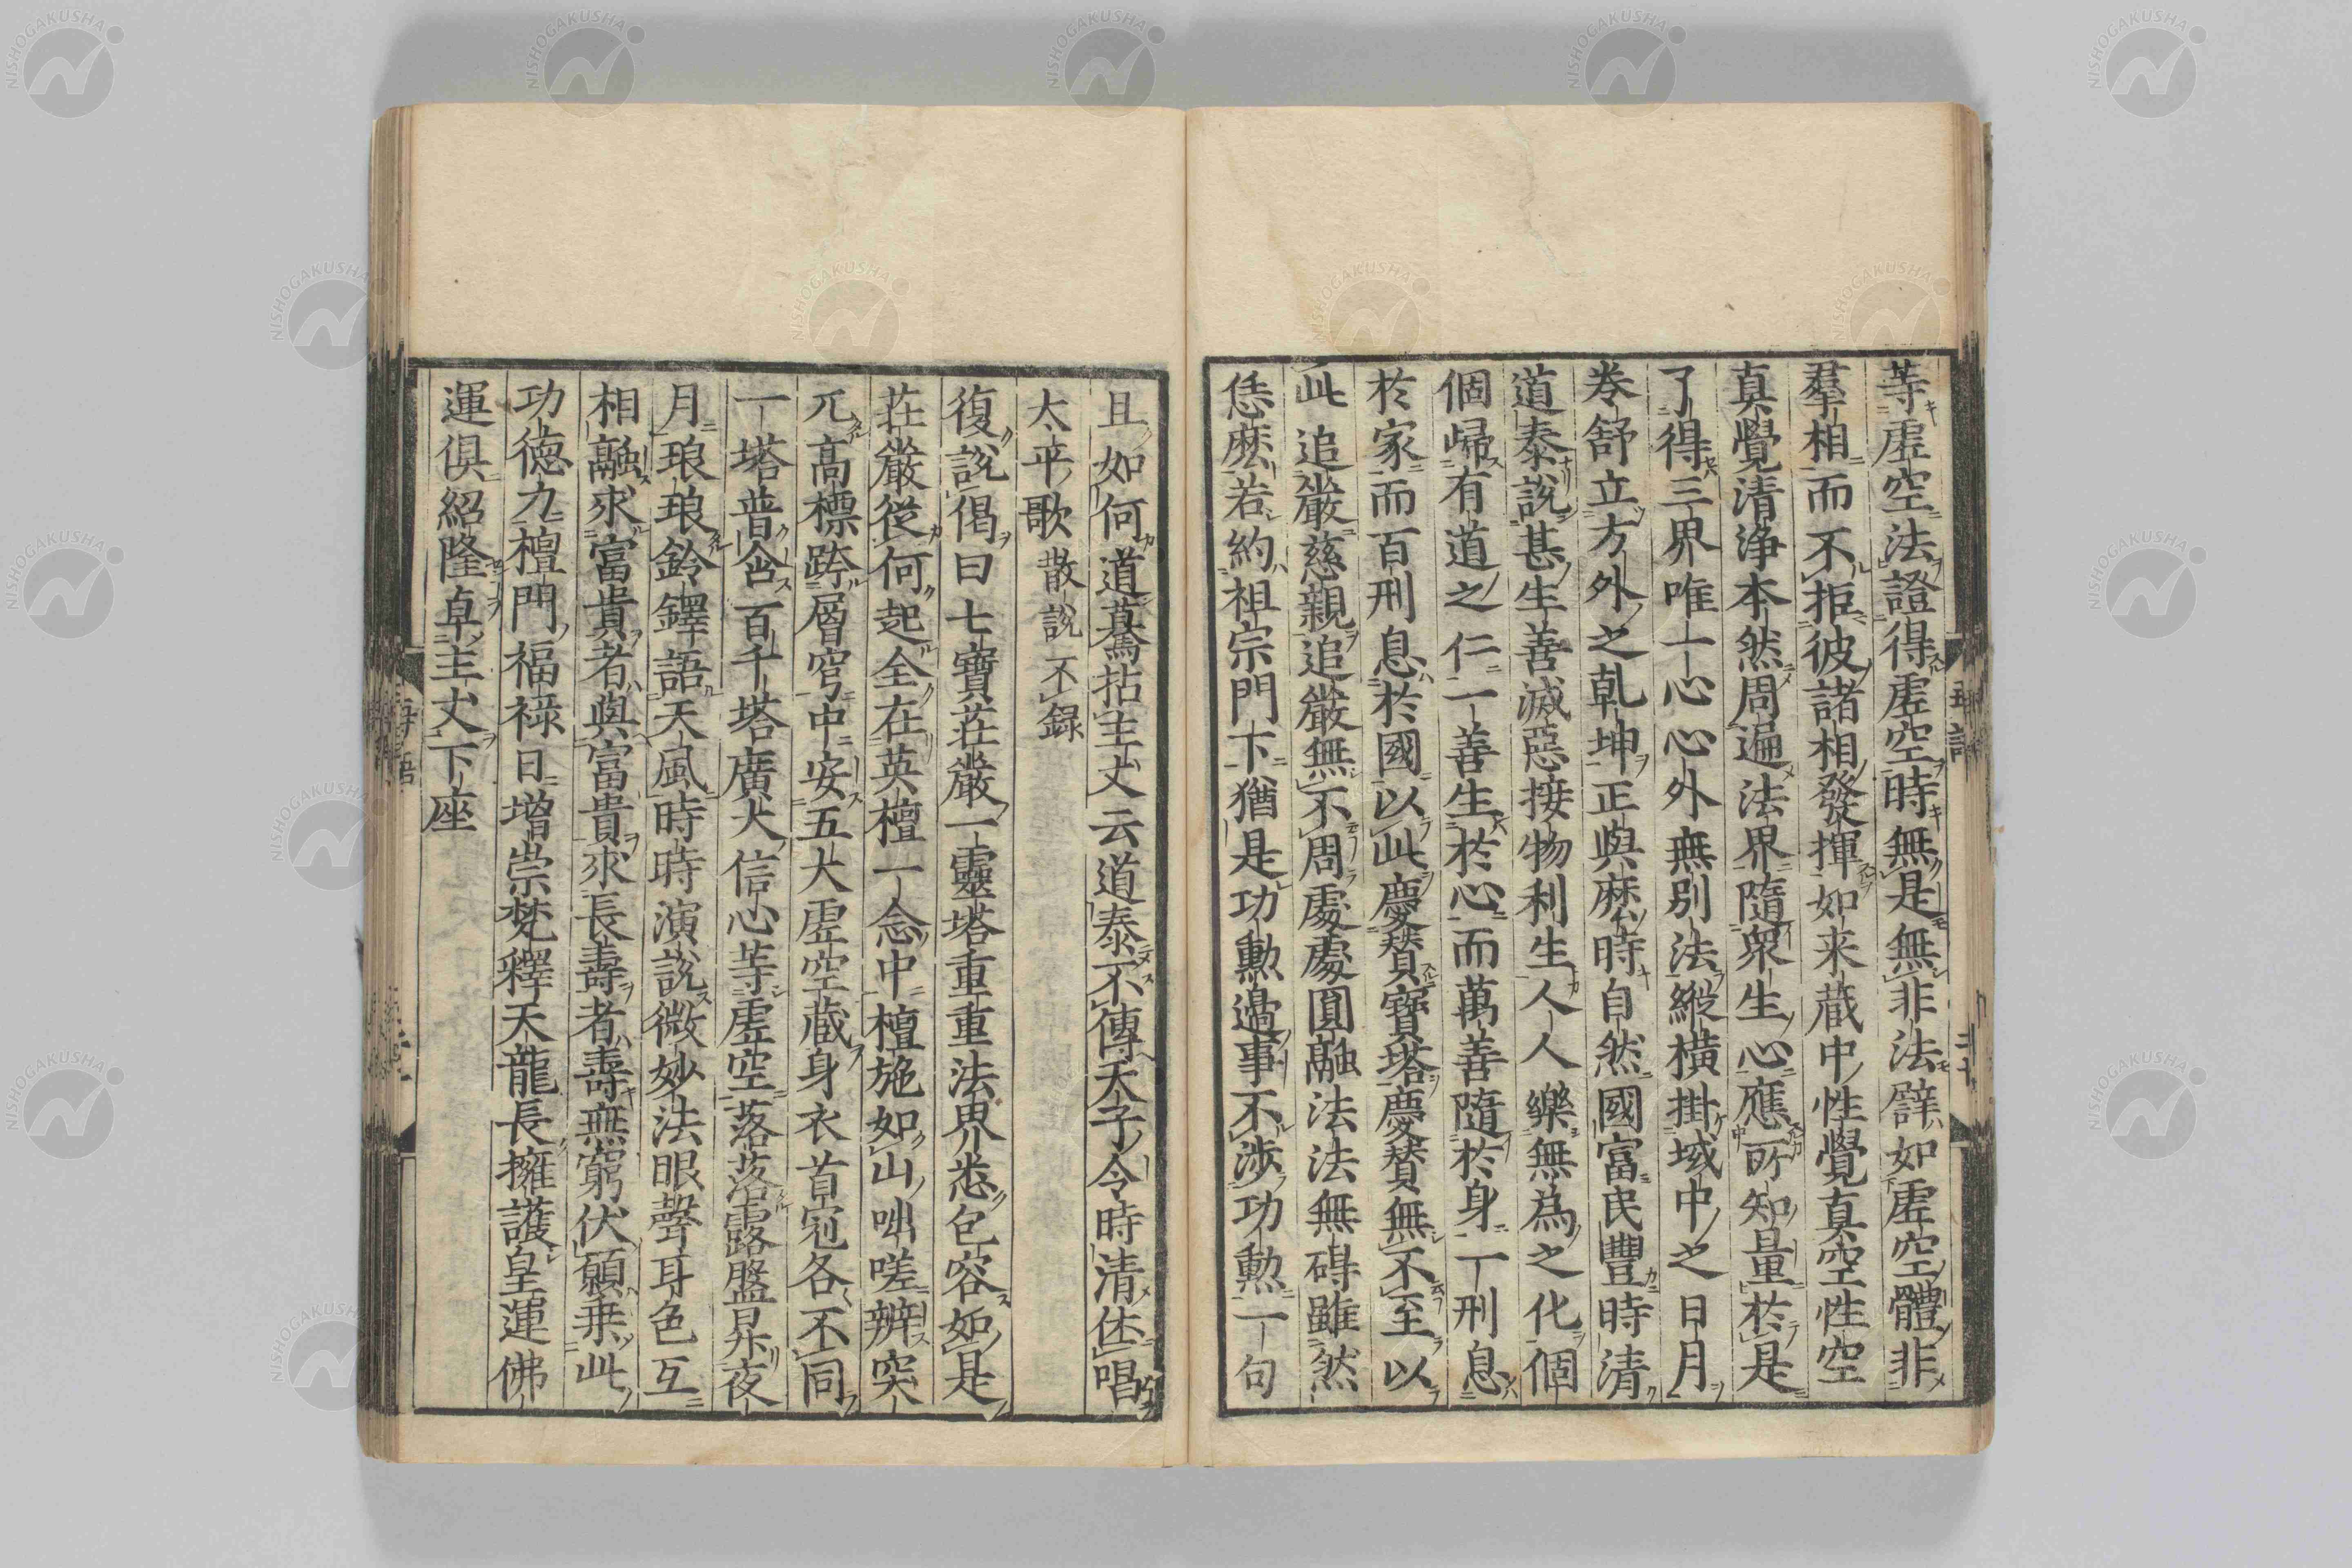 等虚空法證得虚空時無是無非法譬如虚空體非
羣相而不拒彼諸相發揮如来蔵中性覺真空性空
真覺清浄本然周遍法界隨衆生心應所知量於是
了得三界唯一心心外無別法縱横掛域中之日月
卷舒立方外之乾坤正與麽時自然國富民豐時清
道泰説甚生善滅惡接物利生人人樂無為之化個
個歸有道之仁一善生於心而萬善隨於身一刑息
於家而百刑息於國以此慶賛寶塔慶賛無不至以
此追嚴慈親追嚴無不周處處圓融法法無碍雖然
恁麽若約祖宗門下猶是功勲邊事不渉功勲一句
且如何道驀拈主丈云道泰不傳天子令時清休唱
太平歌 散説不録
復説偈曰七寶莊嚴一靈塔重重法界悉包容如是
莊嚴從何起全在英檀一念中檀施如山咄嗟辨突
兀高標跨層穹中安五大虚空蔵身衣首冠各不同
一塔普含百千塔廣大信心等虚空落落露盤昇夜
月琅琅鈴鐸語天風時時演説微妙法眼聲耳色互
相融求富貴者與富貴求長壽者壽無窮伏願乗此
功徳力檀門福禄日増崇梵釋天龍長擁護皇運佛
運倶紹隆卓主丈下座
NISHOGAKUSHA